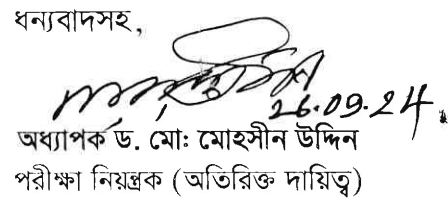 ধন্যবাদসহ,
26.09.24
অধ্যাপক ড. মোঃ মোহসীন উদ্দিন
পরীক্ষা নিয়ন্ত্রক (অতিরিক্ত দায়িত্ব)